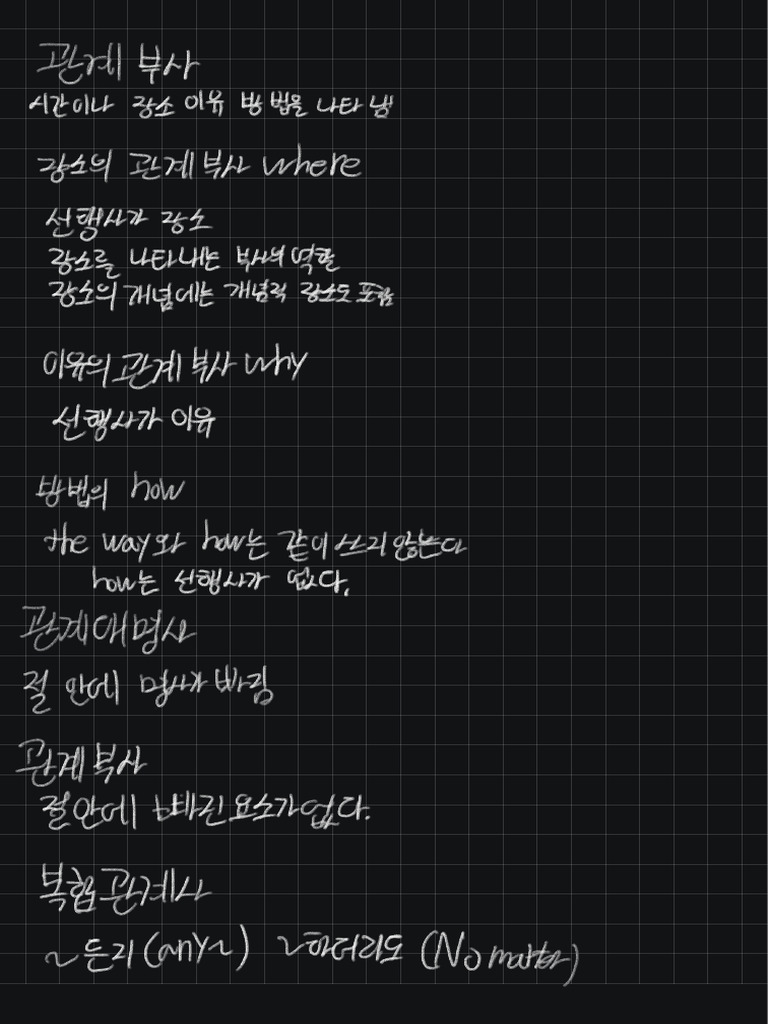 관계 부사
시간이나 장소 이유 방법을 나타냄
장소의 관계부사 where
선행사가 장소
장소를 나타내는 부사의 역할
장소의 개념에는 개념적 장소도 포함
이유의 관계부사 why
선행사가 이유
방법의 how
the way와 how는 같이 쓰지 않는다
how는 선행사가 없다.
관계대명사
절 안에 명사가 빠짐
관계부사
절안에 빠진요소가없다.
복합관계사
~든지(any~) ~하더라도 (No matter)